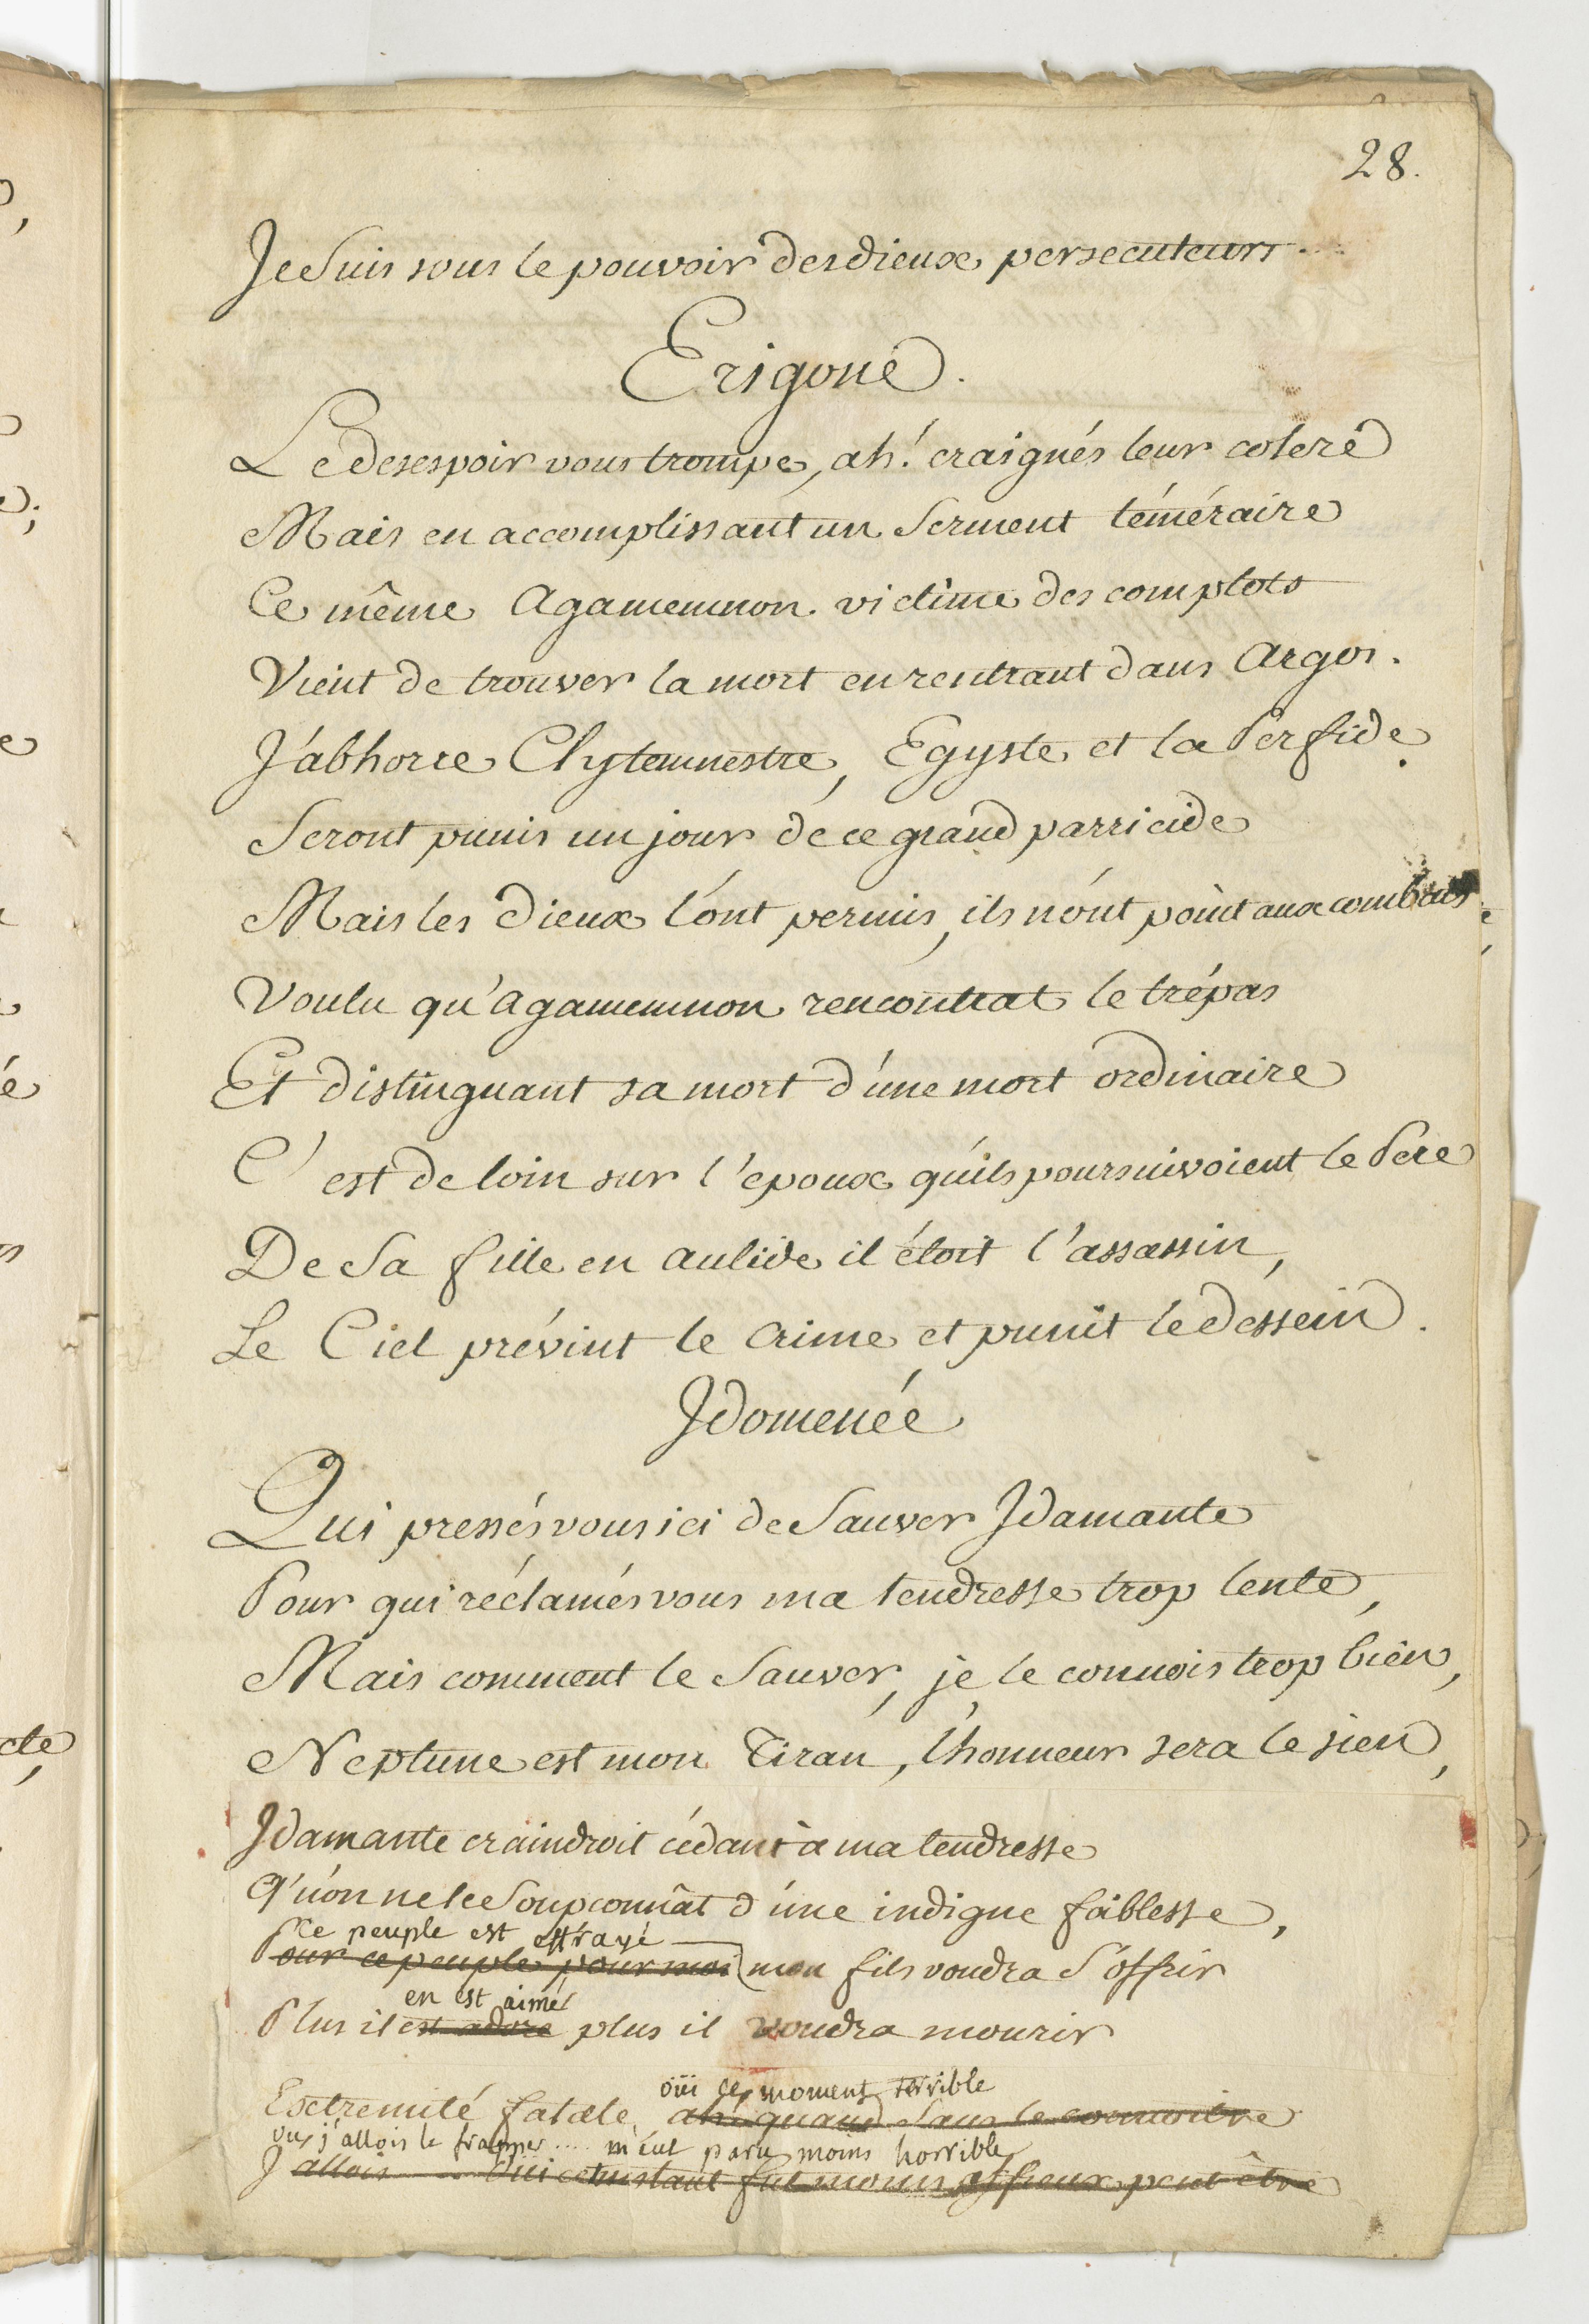 28.
Je Suis sous le pouvoir des dieux persecuteurs...
Erigone.
Le desespoir vous trompe, ah! craignés leur colere
Mais en accomplissant un Serment téméraire
Ce même Agamemnon victime des complots
Vient de trouver la mort en rentrant dans Argos.
J'abhorre Clytemnestre, Egyste et la Perfide
Seront punis un jour de ce grand parricide
Mais les Dieux l'ont permis, ils n'ont point aux combats
Voulu qu'Agamemnon rencontrat le trépas
Et distinguant sa mort d'une mort ordinaire
C'est de loin sur l'epoux qu'ils poursuivoient le Pere
De Sa fille en aulide il étoit l'assassin,
Le Ciel prévint le crime et punit le dessein.
Idomenée
Qui pressés vous ici de Sauver Idamante
Pour qui réclamés vous ma tendresse trop lente,
Mais comment le Sauver, je le connois trop bien,
Neptune est mon Tiran, l'honneur sera le sien,
Idamante craindroit cédant à ma tendresse
Qu'on ne le Soupçonnât d'une indigne faiblesse,
Ce peuple est effrayé
Pour ce peuple pour moi mon fils voudra S'offrir
en est aimé
Plus il est adoré plus il voudra mourir
oüi ce moment terrible
Extremité fatale, ah! quand Sans le connoitre
où j'allois le frapper.... m'eut paru moins horrible
J'allois.... Oui cet instant fut moins affreux peut être